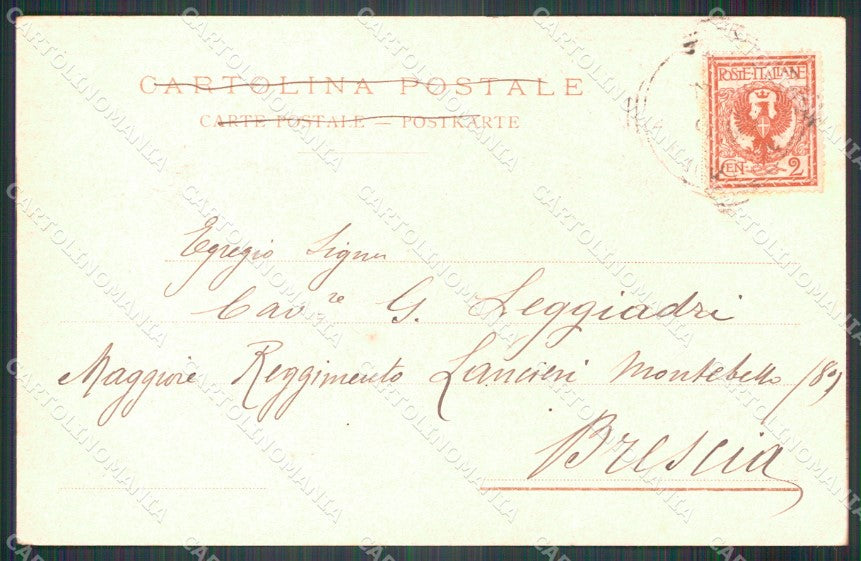 CARTOLINA POSTALE
CARTE POSTALE — POSTKARTE
POSTE·ITALIANE
CEN 2
Egregio Signor
Cav.re G. Leggiadri
Maggiore Reggimento Lancieri Montebello (8º)
Brescia
CARTOLINOMANIA